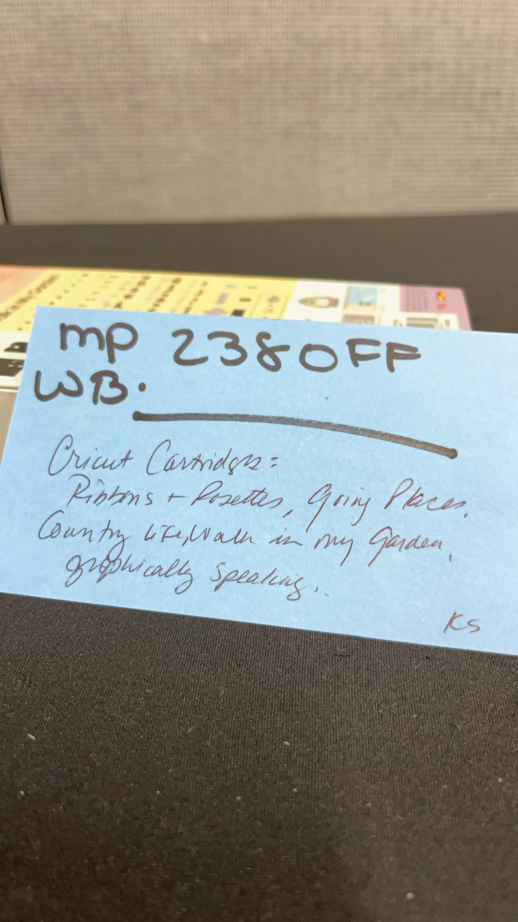 mp 2380FF
WB.
Cricut Cartridges:
Ribbons + Rosettes, Going Places,
Country Life, Walk in my Garden,
graphically speaking..
KS